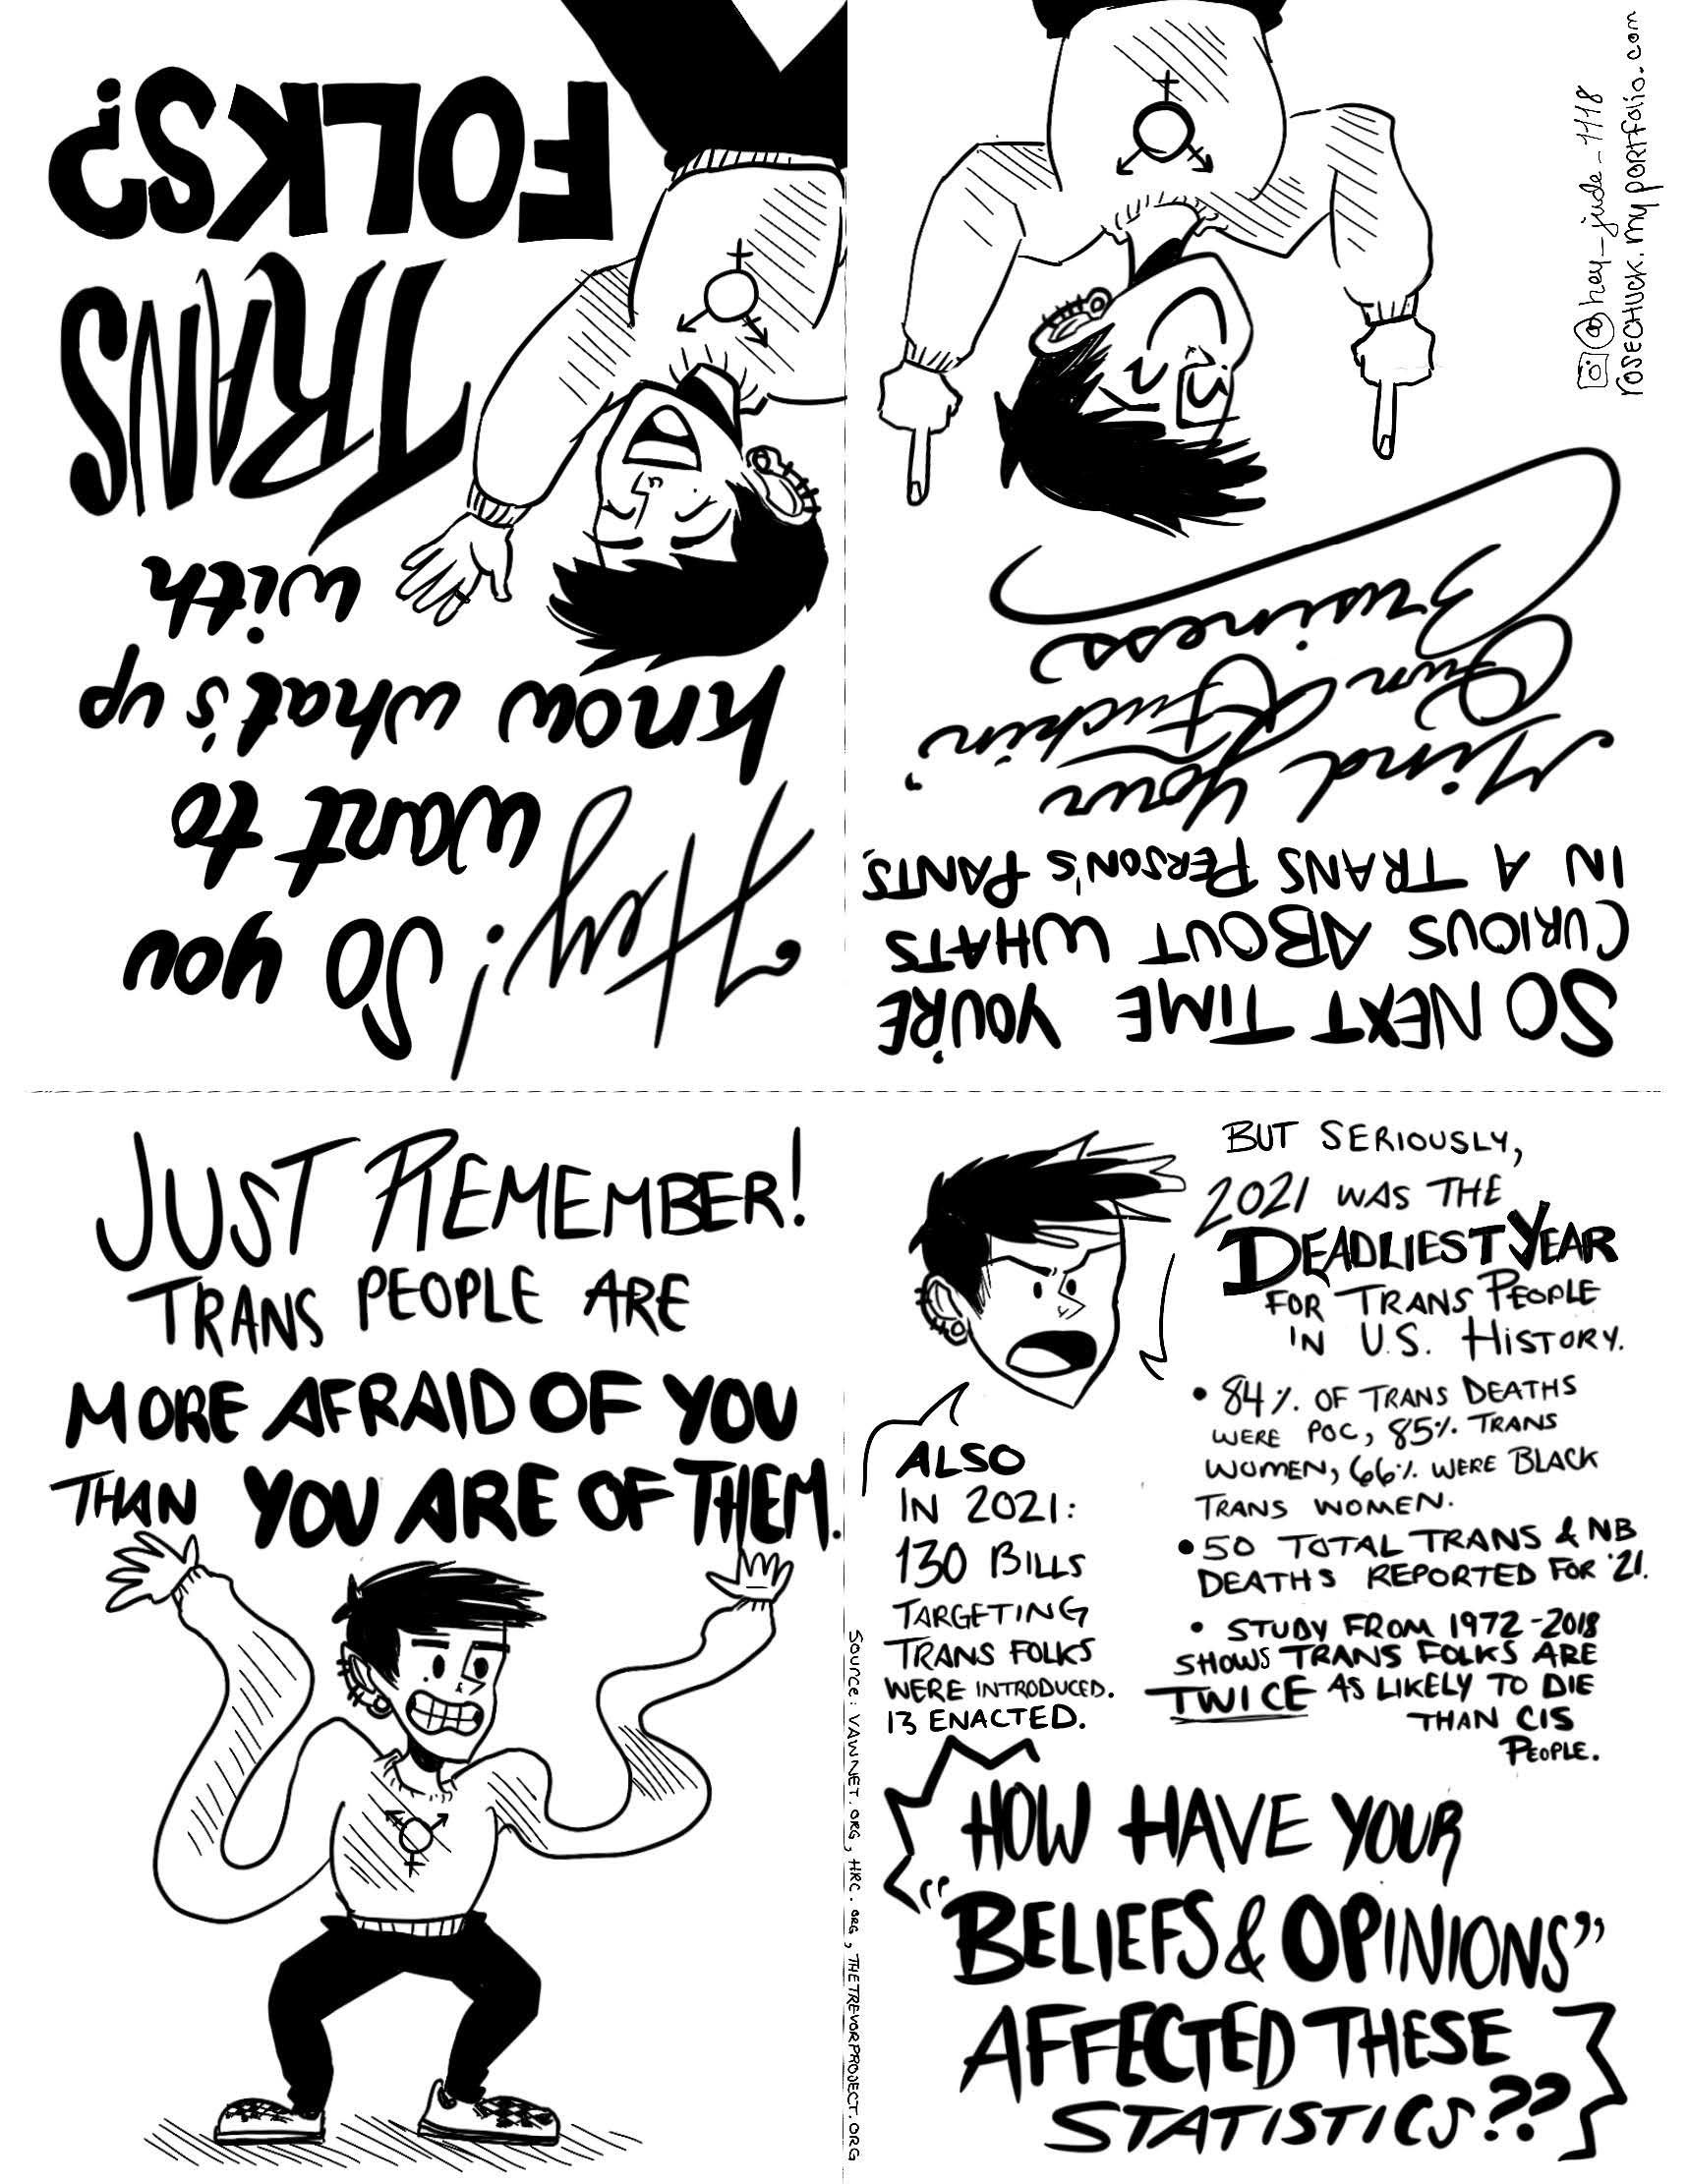 Hey! So you
want to
know what's up
with
TRANS
FOLKS?
SO NEXT TIME YOU'RE
CURIOUS ABOUT WHATS
IN A TRANS PERSON'S PANTS,
Mind your
Own Fuckin'
Business
@hey_jude_1118
rosechuck.myportfolio.com
JUST REMEMBER!
TRANS PEOPLE ARE
MORE AFRAID OF YOU
THAN YOU ARE OF THEM.
BUT SERIOUSLY,
2021 WAS THE
DEADLIEST YEAR
FOR TRANS PEOPLE
IN U.S. HISTORY.
• 84% OF TRANS DEATHS
WERE POC, 85% TRANS
WOMEN, 66% WERE BLACK
TRANS WOMEN.
• 50 TOTAL TRANS & NB
DEATHS REPORTED FOR '21.
• STUDY FROM 1972-2018
SHOWS TRANS FOLKS ARE
TWICE AS LIKELY TO DIE
THAN CIS
PEOPLE.
ALSO
IN 2021:
130 BILLS
TARGETING
TRANS FOLKS
WERE INTRODUCED.
13 ENACTED.
HOW HAVE YOUR
"BELIEFS & OPINIONS"
AFFECTED THESE
STATISTICS??
SOURCE: VAWNET.ORG, HRC.ORG, THETREVORPROJECT.ORG